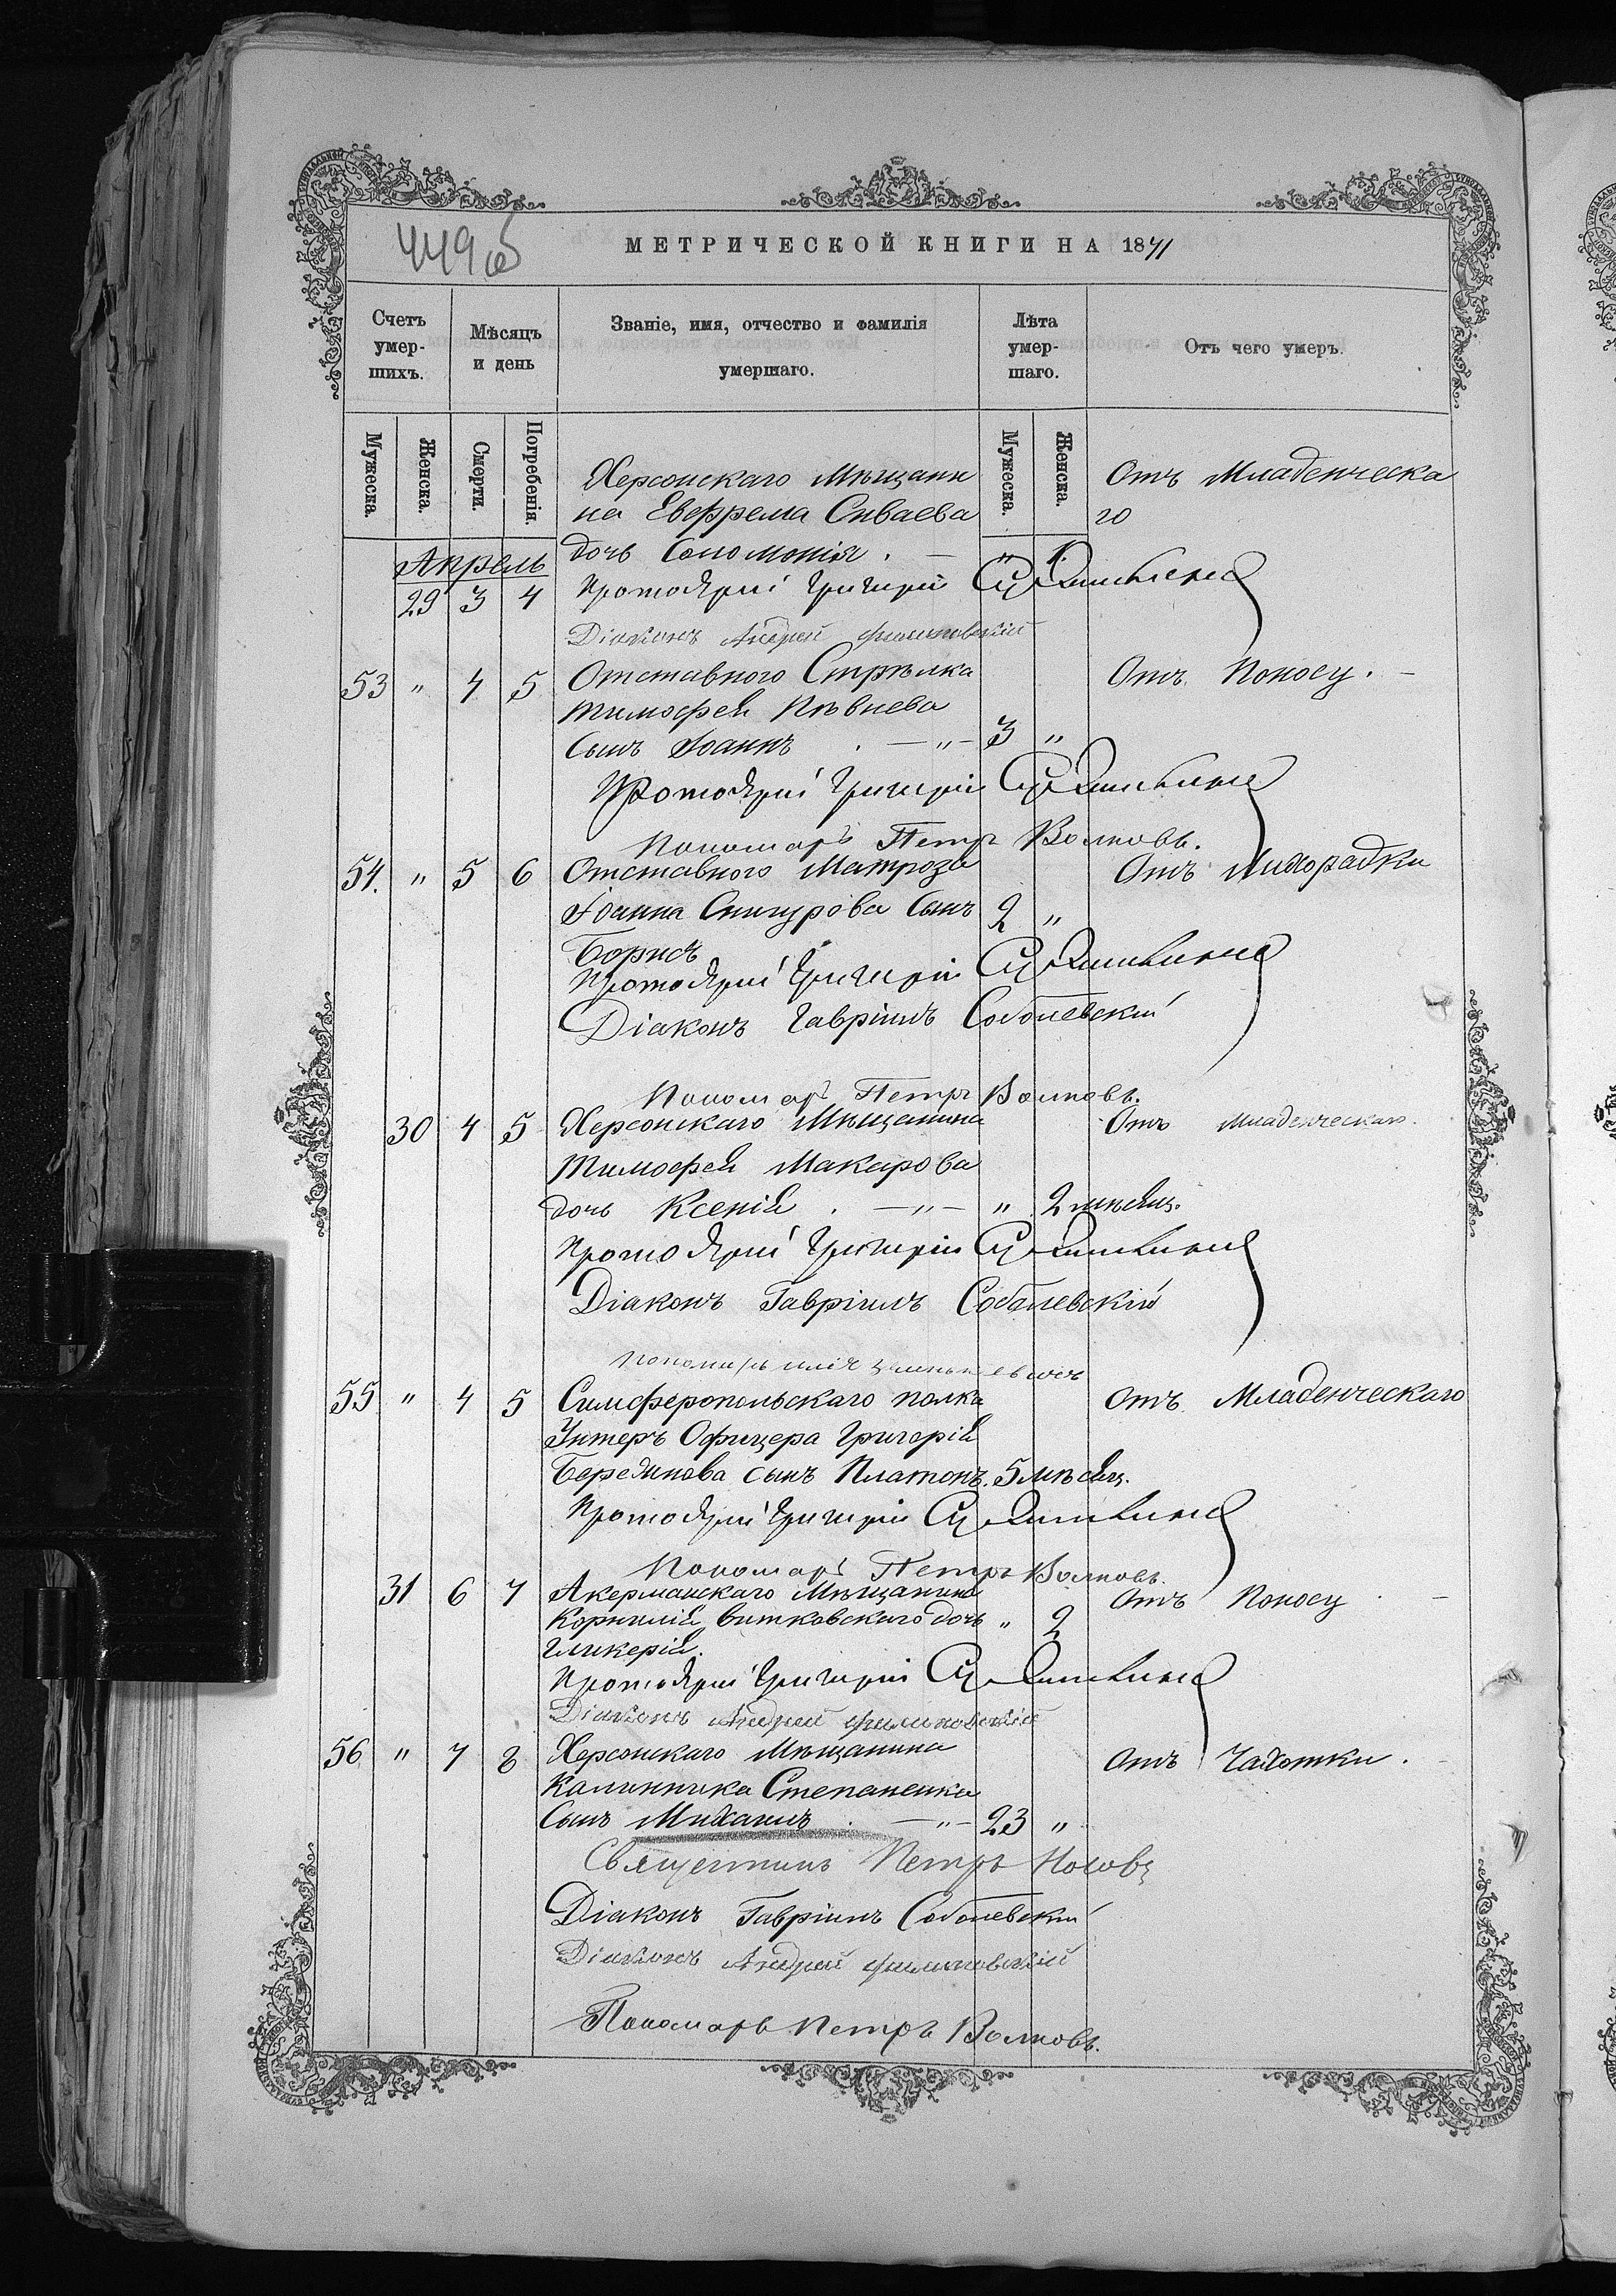 449 об
МЕТРИЧЕСКОЙ КНИГИ НА 1871
Счетъ умер-шихъ.
Мѣсяцъ и день
Званіе, имя, отчество и фамилія умершаго.
Лѣта умер-шаго.
Отъ чего умеръ.
Мужеска. Женска. Смерти. Погребенія. Мужеска. Женска.
Херсонскаго Мѣщани Отъ Младенческа
на Евфрема Сиваева го
Апрель дочь Соломонія . — " 1.
29 3 4 Протоіерей Григорій
Діаконъ Андрей
53 " 4 5 Отставного Стрѣлка Отъ Поносу. —
Тимофея Пѣвнева
Сынъ Іоаннъ . — " — 3 "
Протоіерей Григорій
Пономарь Петръ Волковъ.
54. " 5 6 Отставного Матроза Отъ Лихорадки
Іоанна Снигурова Сынъ 2 "
Борисъ
Протоіерей Григорій
Діаконъ Гавріилъ Соболевскій
Пономарь Петръ Волковъ.
30 4 5 Херсонскаго Мѣщанина Отъ Младенческаго.
Тимофея Макарова
дочь Ксенія . — " — " 2 мѣсяц.
Протоіерей Григорій
Діаконъ Гавріилъ Соболевскій
Пономарь Илія
55 " 4 5 Симферопольскаго полка Отъ Младенческаго
Унтеръ Офицера Григорія
Бередикова сынъ Платонъ. 5 мѣсяц.
Протоіерей Григорій
Пономарь Петръ Волковъ.
31 6 7 Акерманскаго Мѣщанина Отъ Поносу —
Корнилія Витковскаго дочь " 2
Гликерія.
Протоіерей Григорій
Діаконъ Андрей
56 " 7 8 Херсонскаго Мѣщанина Отъ Чахотки.
Калинника Степаненка
Сынъ Михаилъ . — " — 23 "
Священникъ Петръ
Діаконъ Гавріилъ Соболевскій
Діаконъ Андрей
Пономарь Петръ Волковъ.